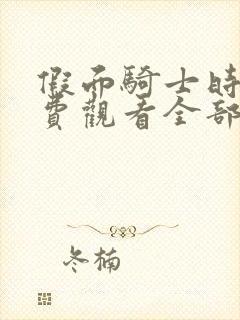 假面騎士時
費觀看全部
冬楠